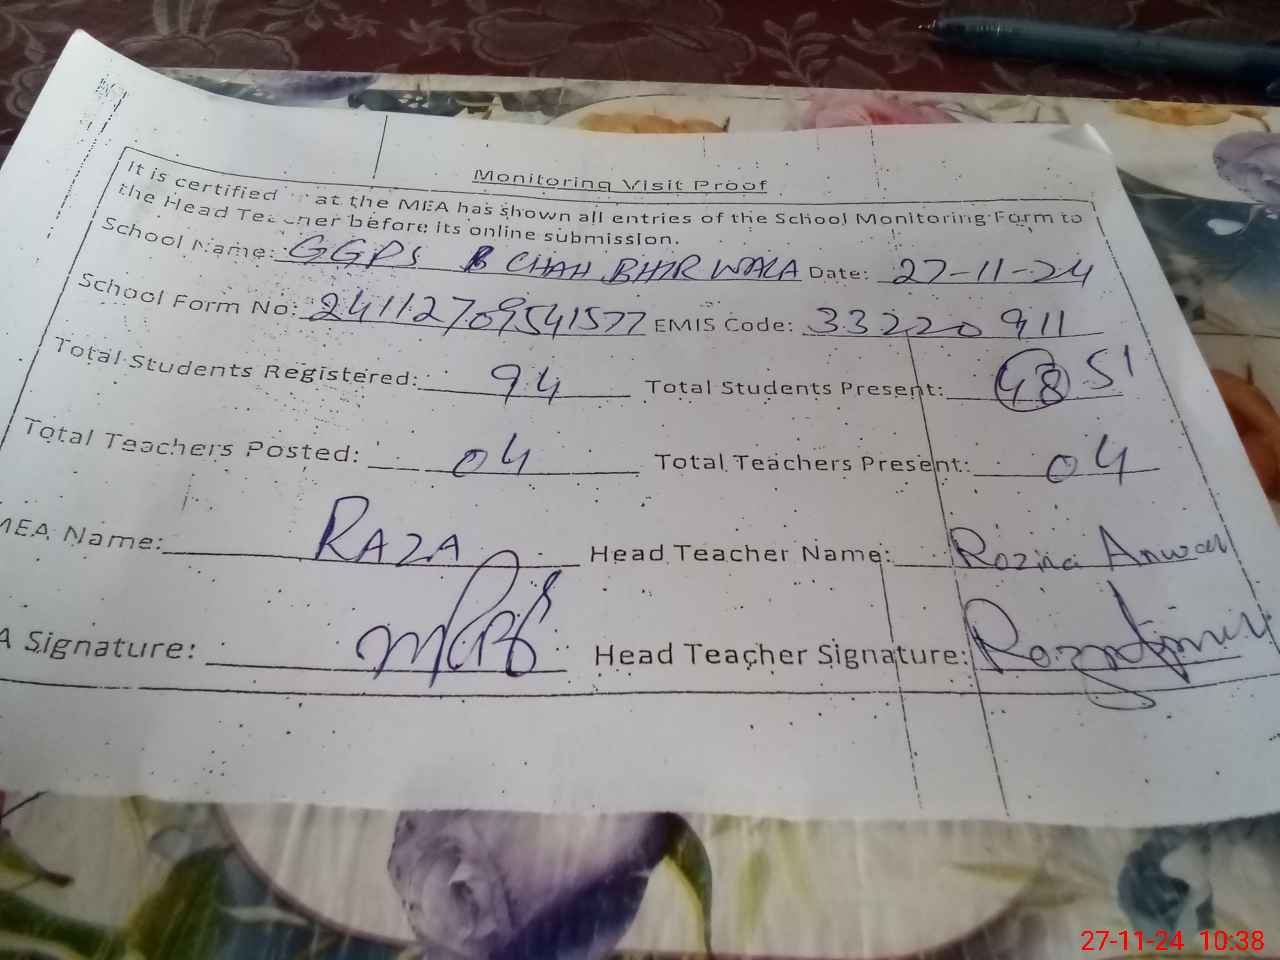 Monitoring Visit Proof
It is certified at the MEA has shown all entries of the School Monitoring Form to
the Head Teacher before its online submission.
School Name: GGPS CHAH BHIR WALA Date: 27-11-24
School Form No: 24112709541577 EMIS Code: 33220911
Total Students Registered: 94 Total Students Present: 48 51
Total Teachers Posted: 04 Total Teachers Present: 04
MEA Name: RAZA Head Teacher Name: Rozina Anwar
A Signature: Head Teacher Signature:
27-11-24 10:38